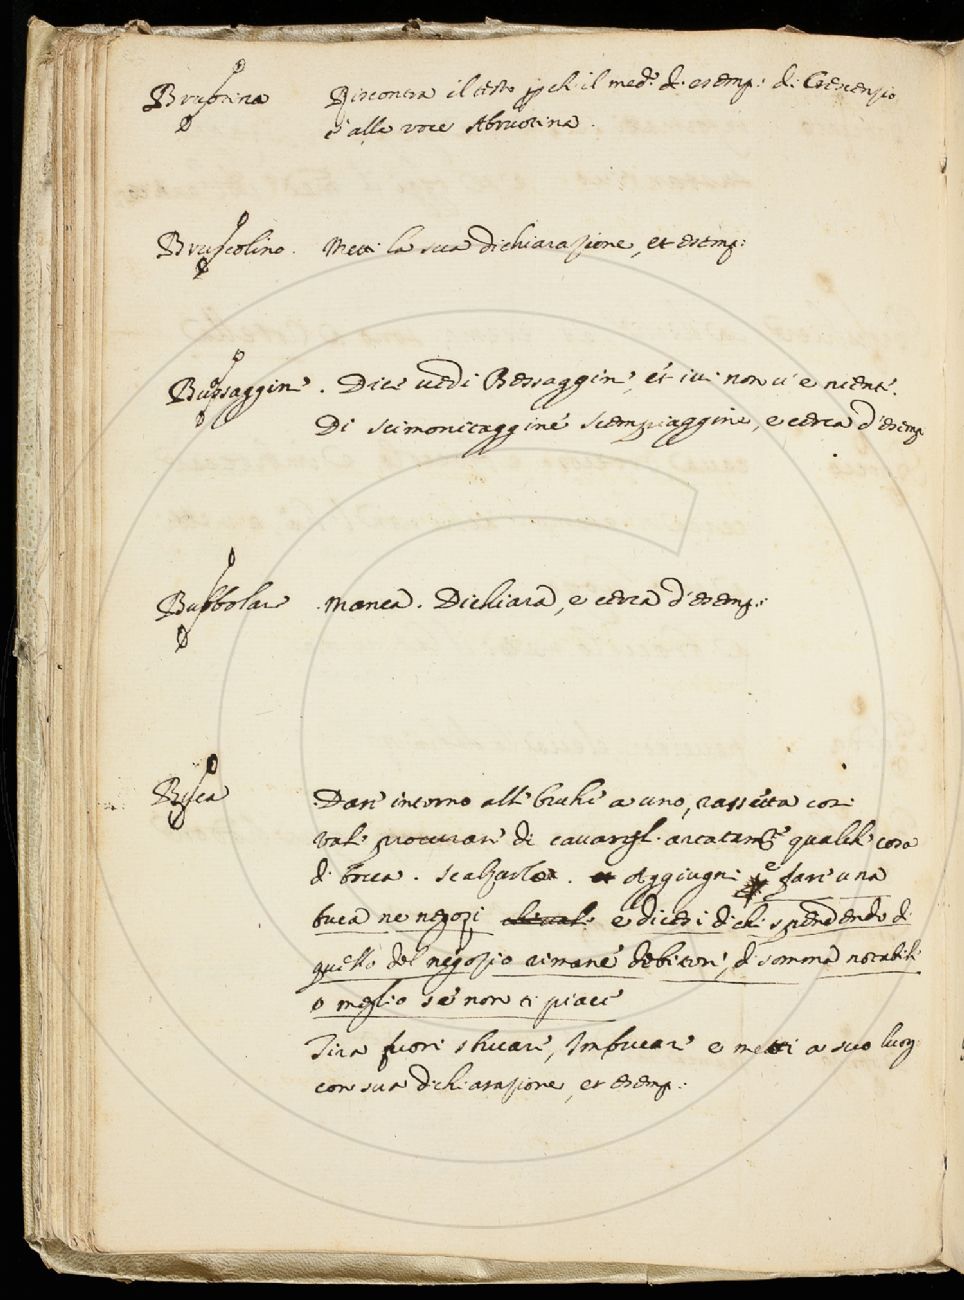 Brustina Riscontra il testo pch il med.o d: esemp: di Crescenzio
è alla voce Abrostina.
Bruscolino. Metti la sua dichiarazione, et esemp:
Bussaggine. Dice vedi Bessaggine, et ivi non v'è niente.
Di scimonitaggine scempiaggine, e cerca d'esemp
Bubbolare Manca. Dichiara, e cerca d'esemp:
Buca Dare intorno alle buche a uno, rassetta cosi
vale procurare di cavargl. artatam.te qualche cosa
di bocca. Scalzarlo. Aggiugni e fare una
buca ne negozi e dicesi di chi spendendo di
quello del negozio rimane debitore, di somma notabile
o meglio se non ti piace
Tira fuori sbucare, Imbucare e metti a suo luog:
con sua dichiarazione, et esemp: